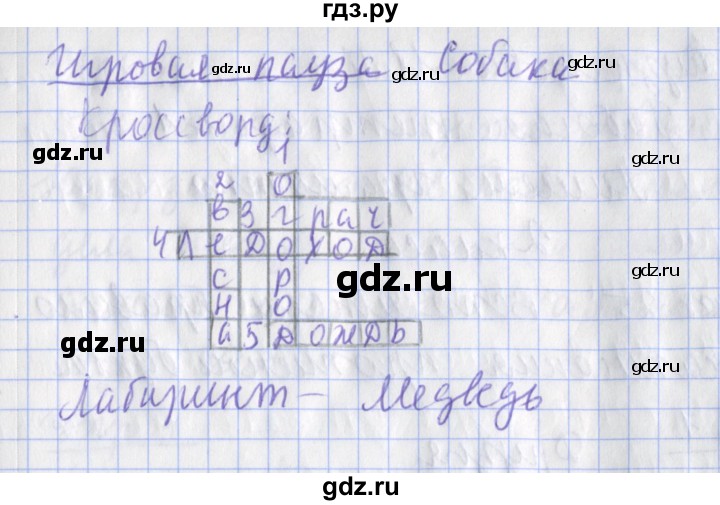 гдз.ру
Игровая пауза Собака
gdz.ru gdz.ru gdz.ru
Кроссворд:
gdz.ru gdz.ru
1
2 О
В 3 г р а ч
4 Л е д о х о д
gdz.ru
С Р
gdz.ru
Н О
а 5 Д о ж д ь
gdz.ru
gdz.ru
Лабиринт – Медведь
gdz.ru
gdz.ru
gdz.ru